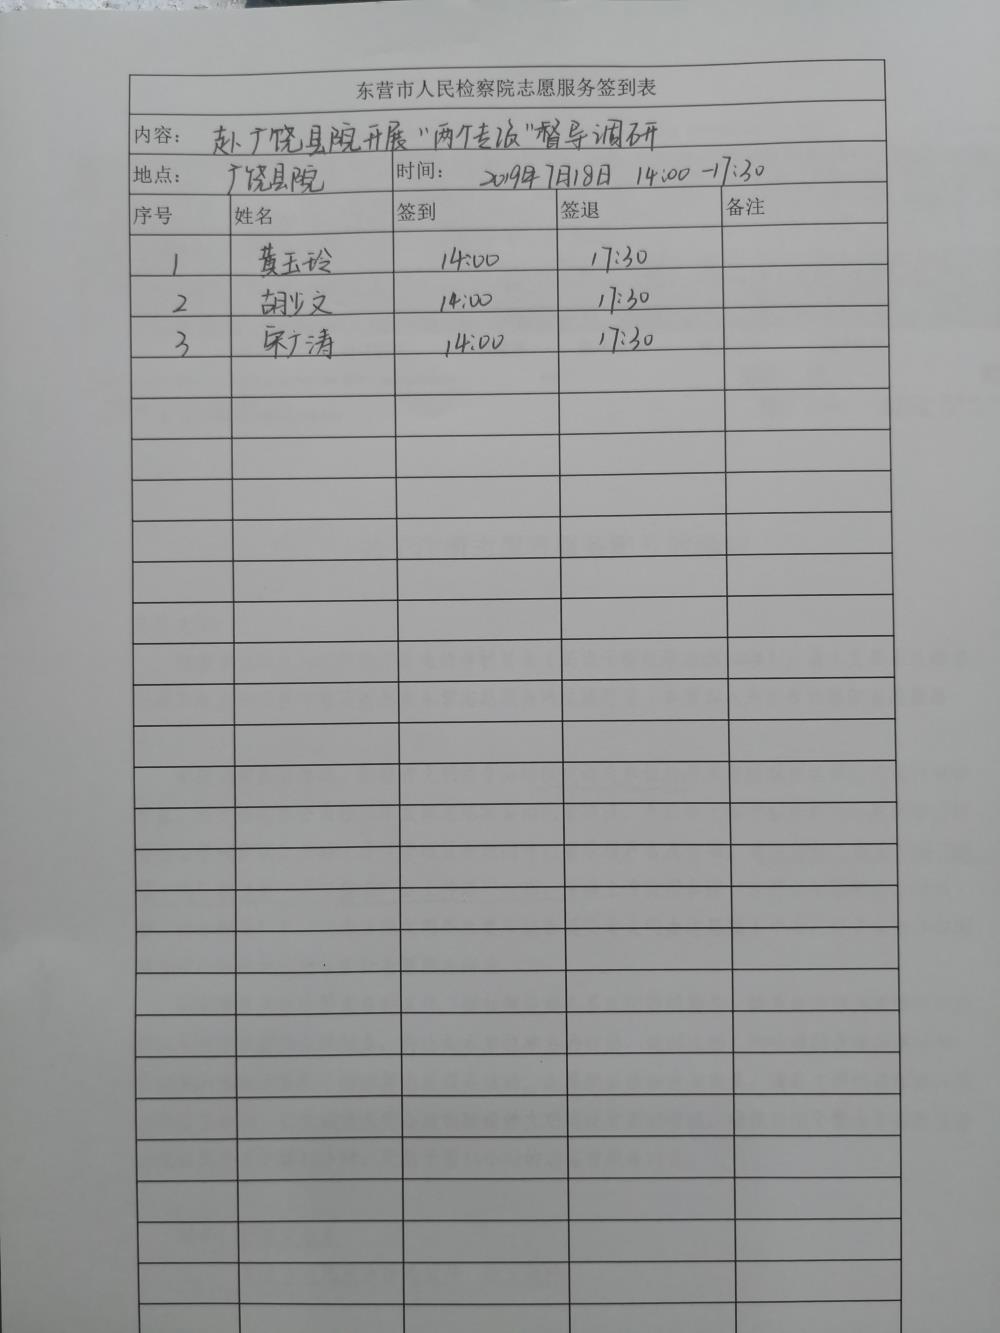 东营市人民检察院志愿服务签到表
内容： 赴广饶县院开展“两个专派”督导调研
地点： 广饶县院 时间： 2019年7月18日 14:00-17:30
序号 姓名 签到 签退 备注
1 黄玉玲 14:00 17:30
2 胡少文 14:00 17:30
3 宋广涛 14:00 17:30